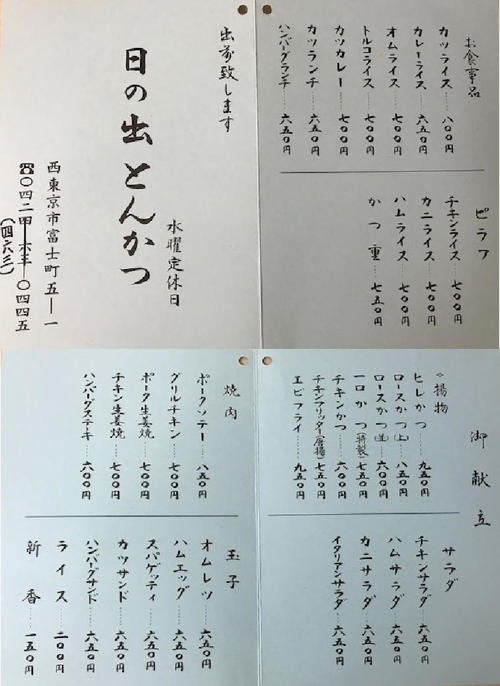 お食事品
カツライス……八〇〇円
カレーライス……六五〇円
オムライス……七〇〇円
トルコライス……七〇〇円
カツカレー……七〇〇円
カツランチ……六五〇円
ハンバーグランチ……六五〇円
ピラフ
チキンライス……七〇〇円
カニライス……七〇〇円
ハムライス……七〇〇円
かつ重……七五〇円
出前致します
日の出とんかつ
水曜定休日
西東京市富士町五―一
御献立
揚物
ヒレかつ……九五〇円
ロースかつ(上)……八五〇円
ロースかつ(並)……七〇〇円
一口かつ(特製)……七五〇円
チキンかつ……六〇〇円
チキンフリッター(唐揚)……七五〇円
エビフライ……九五〇円
サラダ
チキンサラダ……六五〇円
ハムサラダ……六五〇円
カニサラダ……六五〇円
イタリアンサラダ……六五〇円
焼肉
ポークソテー……八五〇円
グリルチキン……七〇〇円
ポーク生姜焼……七〇〇円
チキン生姜焼……七〇〇円
ハンバーグステーキ……六〇〇円
玉子
オムレツ……六五〇円
ハムエッグ……六五〇円
スパゲッティ……六五〇円
カツサンド……六五〇円
ハンバーグサンド……六五〇円
ライス……二〇〇円
新香……一五〇円